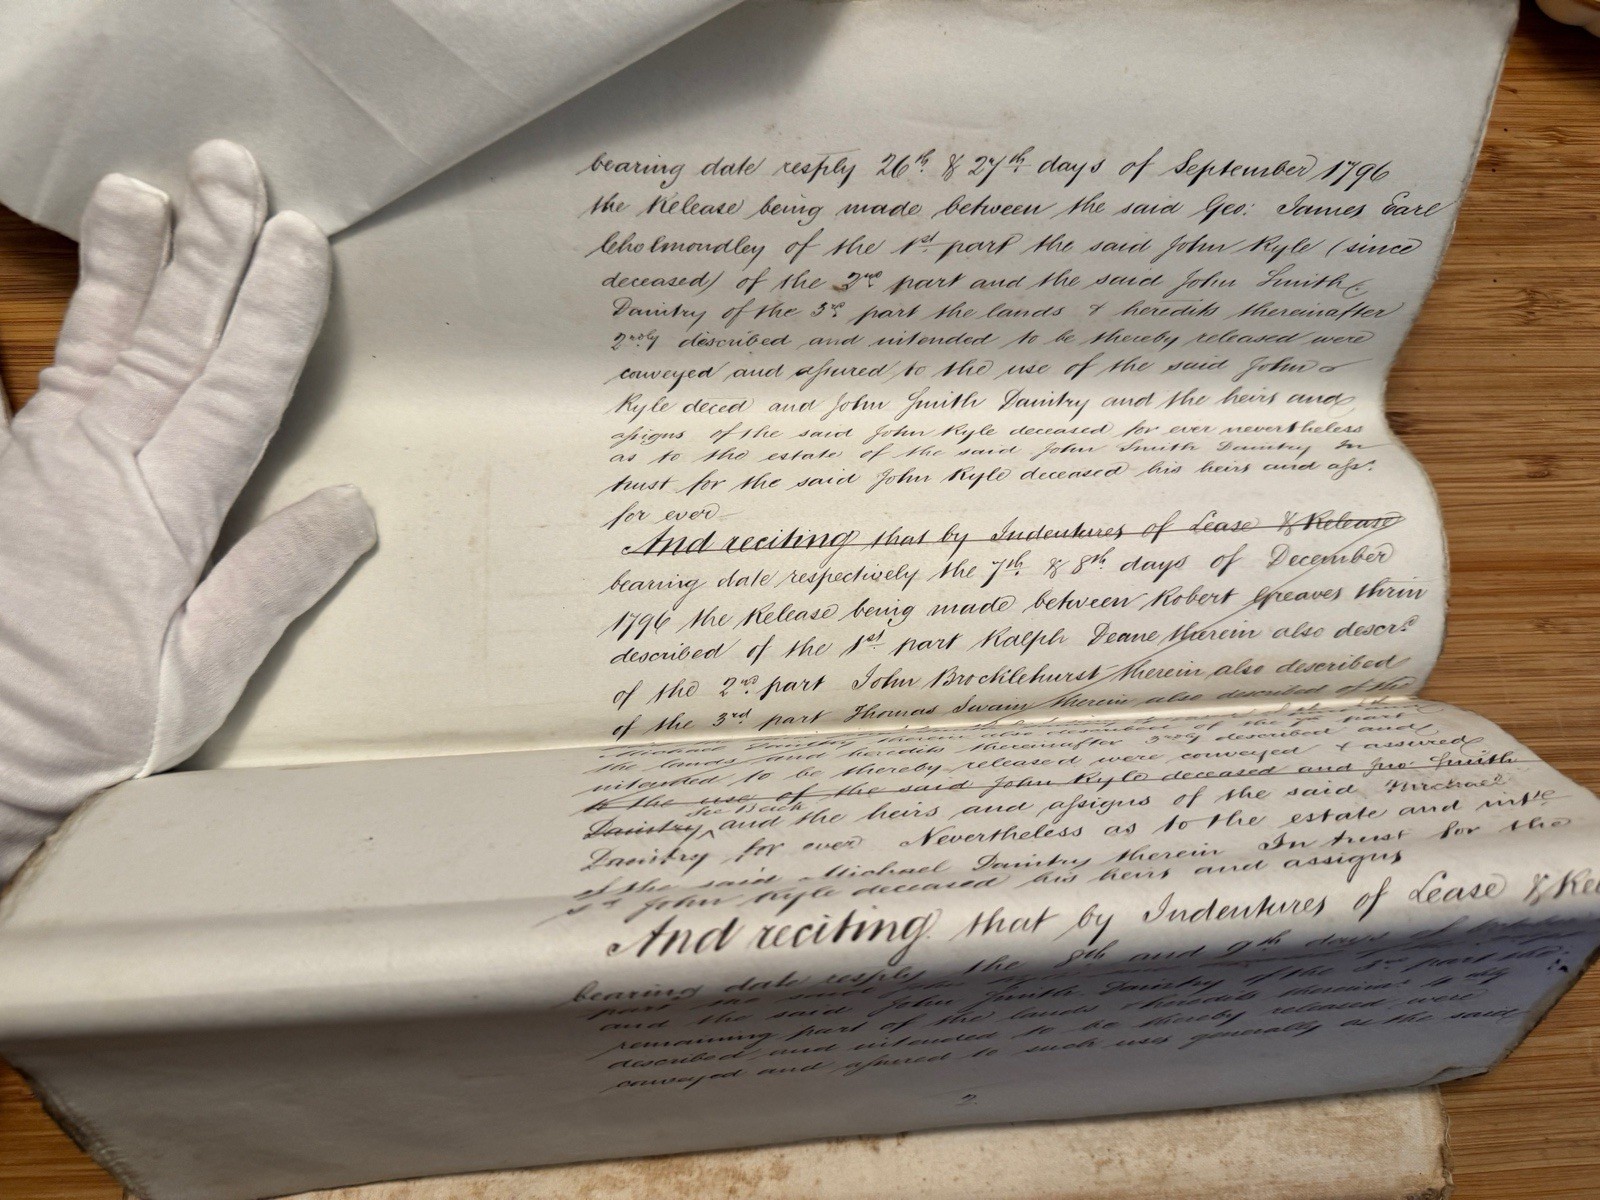 bearing date resply 26th & 27th days of September 1796
the Release being made between the said Geo: James Earl
Cholmondley of the 1st part the said John Ryle (since
deceased) of the 2nd part and the said John Smith
Daintry of the 3rd part the lands & heredits thereinafter
2ndly described and intended to be thereby released were
conveyed and assured to the use of the said John
Ryle deced and John Smith Daintry and the heirs and
assigns of the said John Ryle deceased for ever nevertheless
as to the estate of the said John Smith Daintry In
trust for the said John Ryle deceased his heirs and ass:
for ever
And reciting that by Indentures of Lease & Release
bearing date respectively the 7th & 8th days of December
1796 the Release being made between Robert Greaves thrin
described of the 1st part Ralph Deane therein also descrd
of the 2nd part John Brocklehurst therein also described
of the 3rd part Thomas Swain therein also described of the
Michael Daintry therein also described of the part
the lands and heredits thereinafter 3rdly described and
intended to be thereby released were conveyed & assured
to the use of the said John Ryle deceased and Jno Smith
See Back
Daintry and the heirs and assigns of the said Michael
Daintry for ever Nevertheless as to the estate and
of the said Michael Daintry therein In trust for the
sd John Ryle deceased his heirs and assigns
And reciting that by Indentures of Lease & Rel
bearing date resply the 8th and 9th days of
part the said
and the said John Smith Daintry of the 3rd part the
remaining part of the lands & heredits thereinar 4thly
described and intended to be thereby released were
conveyed and assured to such uses generally as the said
2